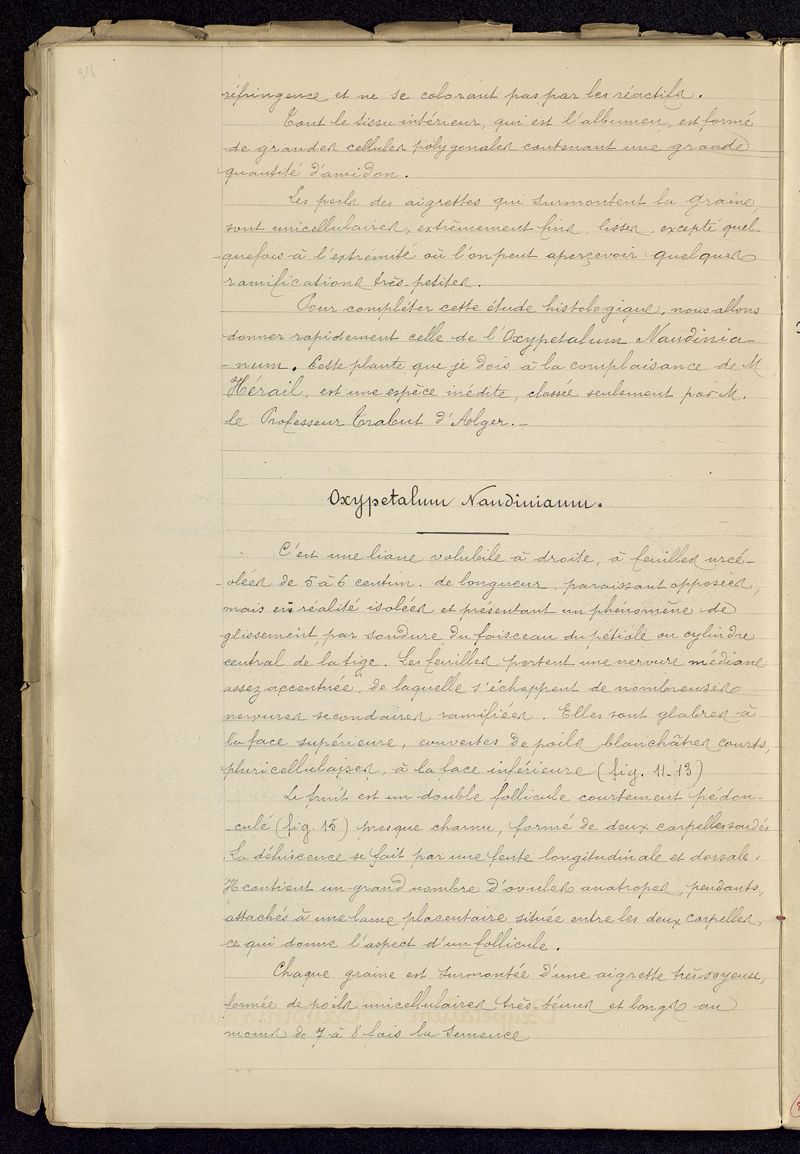 réfringence et ne se colorant pas par les réactifs.
Tout le tissu intérieur, qui est l'albumen, est formé
de grandes cellules polygonales contenant une grande
quantité d'amidon.
Les poils des aigrettes qui surmontent la graine,
sont unicellulaires, extrêmement fins, lisses, excepté quel-
-quefois à l'extrémité où l'on peut apercevoir quelques
ramifications très-petites.
Pour compléter cette étude histologique, nous allons
donner rapidement celle de l'Oxypetalum Naudinia-
-num. Cette plante que je dois à la complaisance de M
Hérail, est une espèce inédite, classée seulement par M.
le Professeur Trabut d'Alger.-
Oxypetalum Naudinianum.
C'est une liane volubile à droite, à feuilles urcé-
-olées de 5 à 6 centim. de longueur, paraissant opposées,
mais en réalité isolées et présentant un phénomène de
glissement, par soudure du faisceau du pétiole au cylindre
central de la tige. Les feuilles portent une nervure médiane
assez accentuée, de laquelle s'échappent de nombreuses
nervures secondaires ramifiées. Elles sont glabres à
la face supérieure, couvertes de poils blanchâtres courts,
pluricellulaires, à la face inférieure (fig. 11-13)
Le fruit est un double follicule courtement pédon-
-culé (fig. 15) presque charnu, formé de deux carpelles soudés
La déhiscence se fait par une fente longitudinale et dorsale.
Il contient un grand nombre d'ovules anatropes, pendants,
attachés à une lame placentaire située entre les deux carpelles,
ce qui donne l'aspect d'un follicule.
Chaque graine est surmontée d'une aigrette très-soyeuse,
formée de poils unicellulaires très-ténus et longs au
moins de 7 à 8 fois la semence